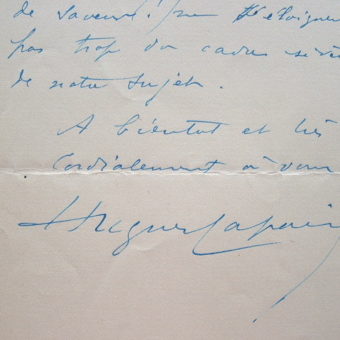 de saveur ! ne s'éloigner
pas trop du cadre
de notre sujet.
A bientot et très
Cordialement à vous
Hugues Lapaire